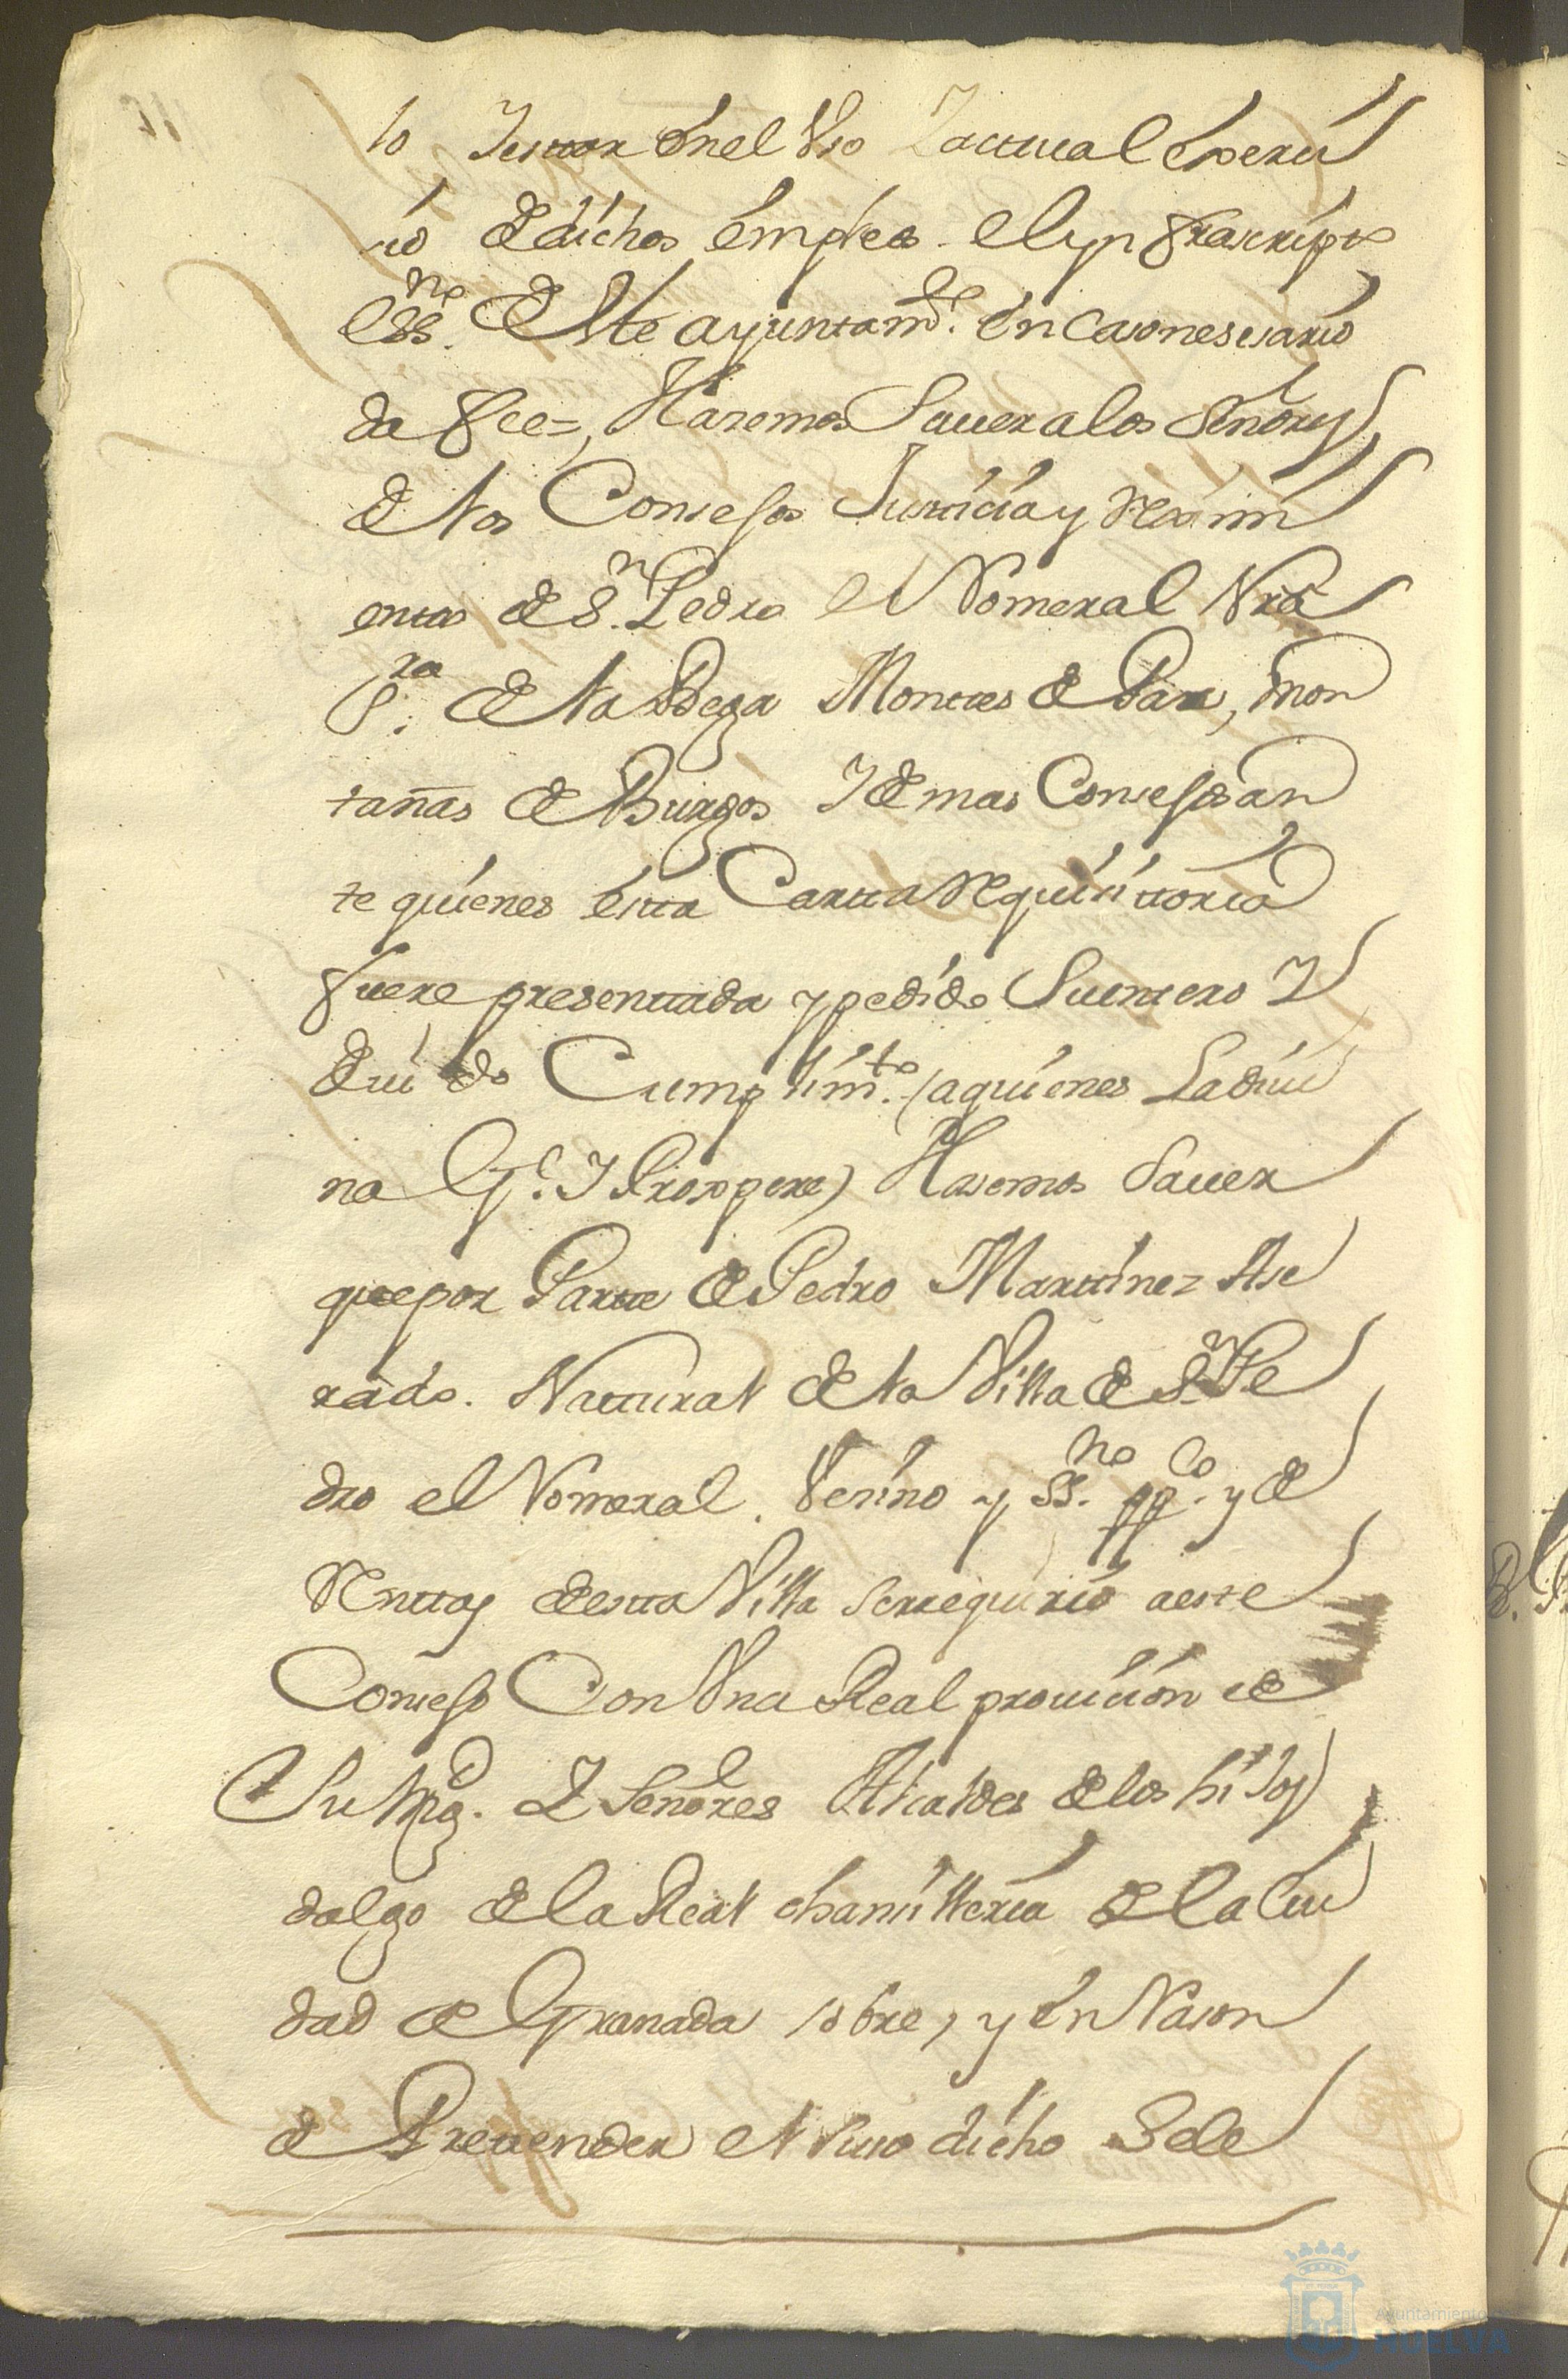 lo Y estar én el Vso Y actual éxerci
cio de dichos émpleos el ynfrascripto
ess.no de este ayuntam.to én caso nesesario
da fee =, Hasemos Sauer a los Señores
de los Consejos Justicia y Reximi
entos de S.n Pedro el Romeral Nrâ
S.ra de la Bega Montes de Paz, mon
tañas de Burgos Y demas Consejos an
te quienes ésta Carta Requisitoria
fuere presentada y pedido Su entero Y
deuido Cumplim.to (a quienes La diui
na G.e Y Prospere) Hasemos Sauer
que por Parte de Pedro Martinez Ase
rado. Natural de la Villa de S.n Pe
dro el Romeral. Vesino y ss.no pp.co y de
Rentas de esta Villa se rrequirió a este
Consejo Con Vna Real prouición de
Su Mag.d Y Señores Alcaldes de los hijos
dalgo de la Real chansilleria de la Ciu
dad de Granada sobre, y én Rason
de Pretender el suso dicho Se le
Ayuntamiento de
HUELVA